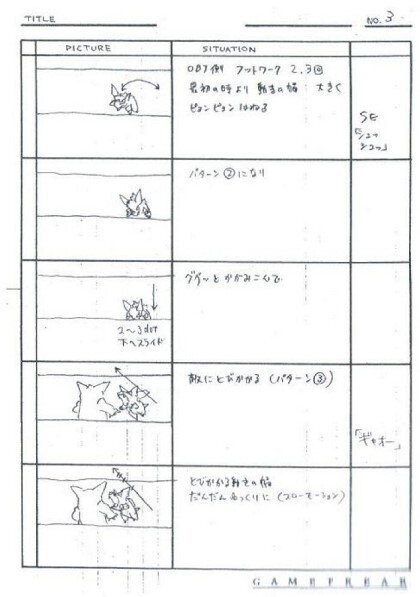 TITLE
NO. 3
PICTURE
SITUATION
OBJ側 フットワーク 2.3回
最初の時より 動きの幅 大きく
ピョンピョン はねる
SE
「シュッ
シュッ」
パターン②になり
ググッと かがみこんで
2〜3dot
下へスライド
敵にとびかかる (パターン③)
「ギャオー」
とびかかる動きの幅
だんだん ゆっくりに (スローモーション)
GAMEFREAK